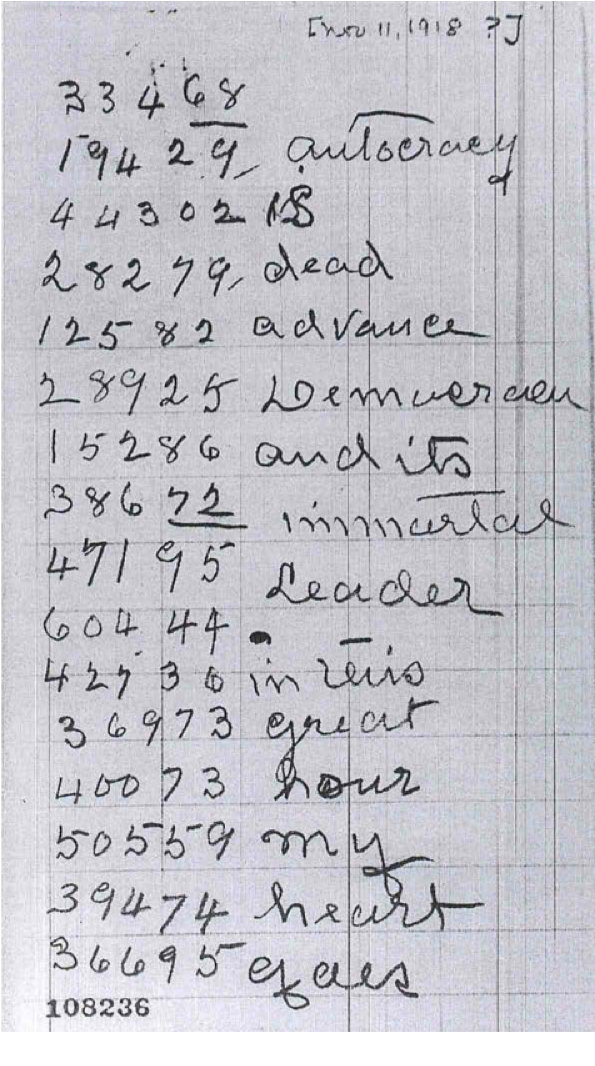 [Nov 11, 1918 ?]
33468
19429, autocracy
44302 is
28279, dead
12582 advance
28925 Democracy
15286 and its
38672 immortal
47195 Leader
60444 .
42730 in this
36973 great
40073 hour
50559 my
39474 heart
36695 goes
108236